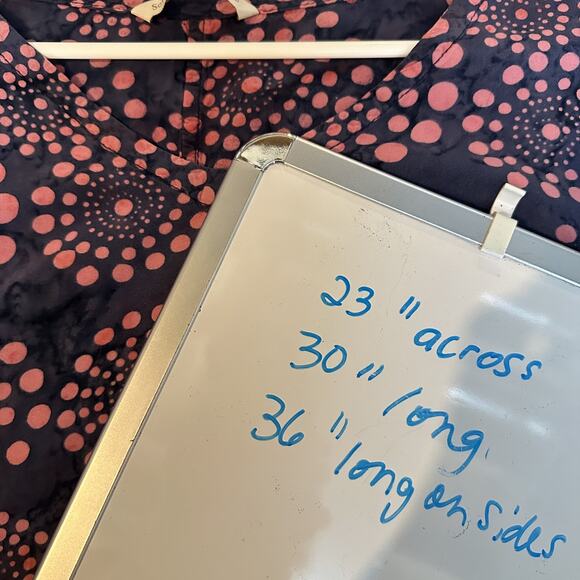 23 " across
30 " long.
36 " long on sides